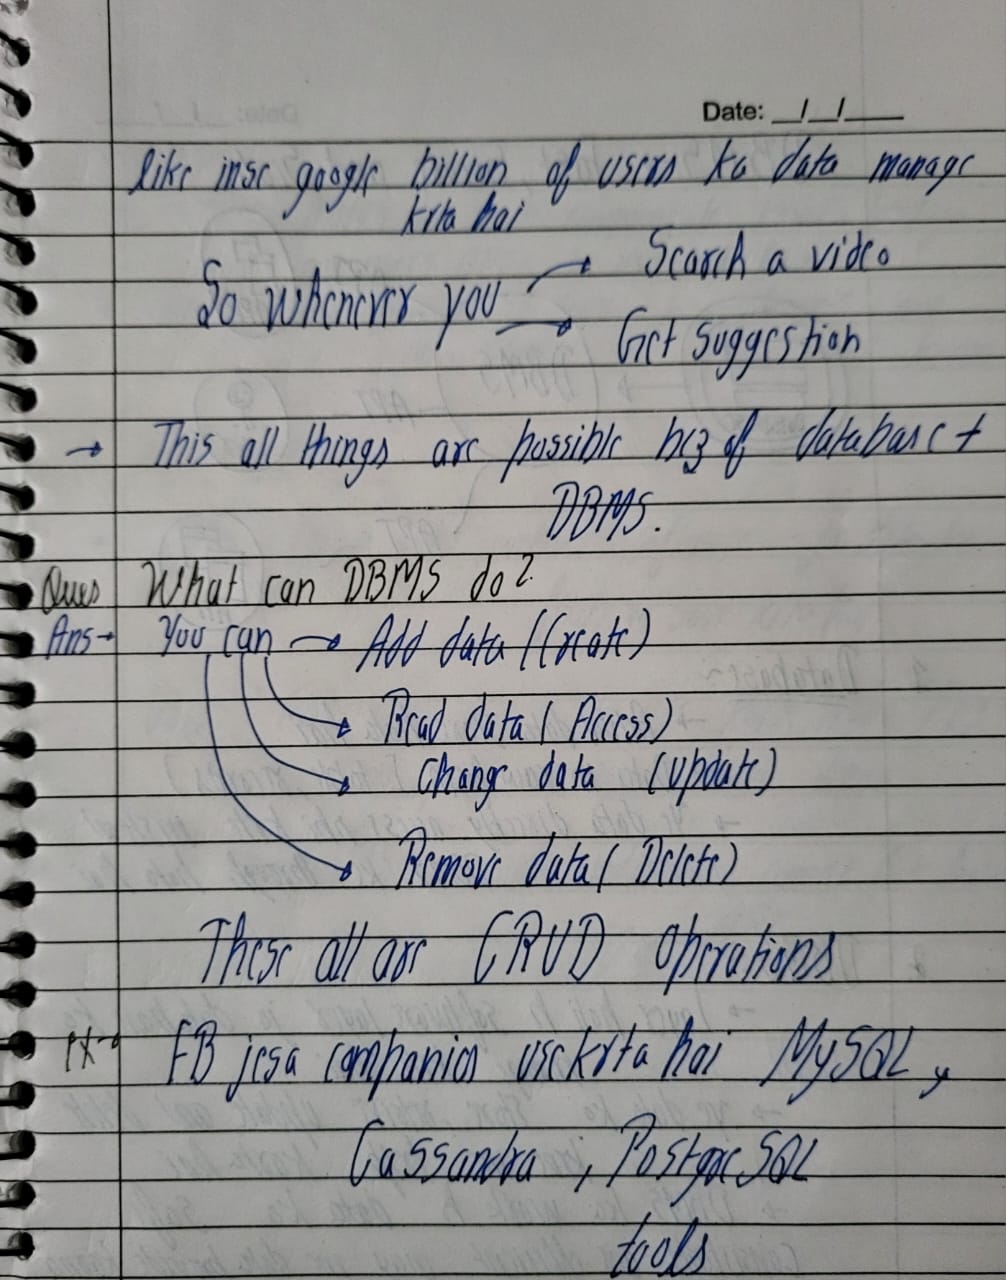 Date: __/__/____
like insc google billion of users ka data manage
krta hai
So Whenever you → Search a video
→ Get Suggestion
→ This all things are possible bcz of database +
DBMS.
Ques What can DBMS do?
Ans→ You can → Add data (Create)
Read data (Access)
Change data (Update)
Remove data (Delete)
These all are CRUD Operations
EX→ FB jesa companies use krta hai MySQL,
Cassandra, PostgreSQL
tools